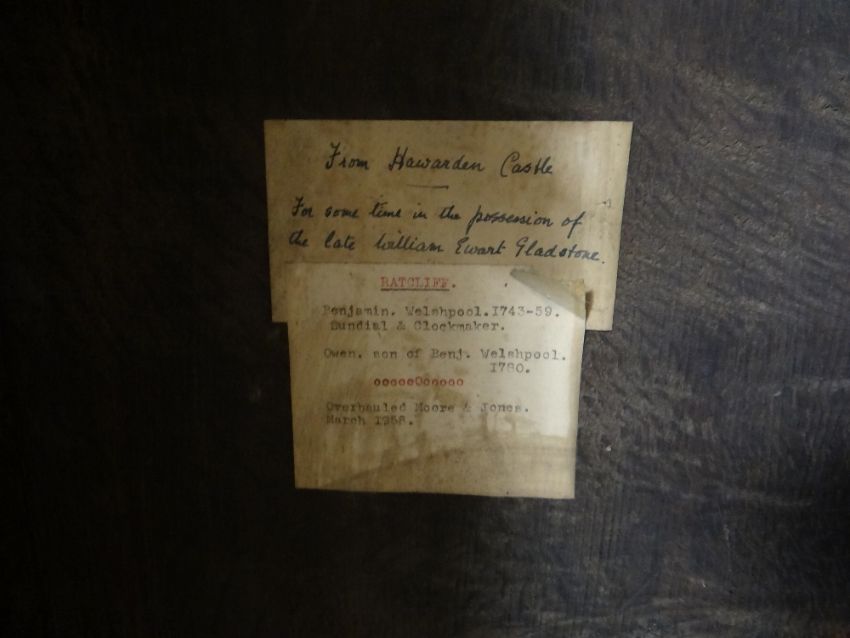 From Hawarden Castle
For some time in the possession of
the late William Ewart Gladstone.
RATCLIFF.
Benjamin. Welshpool.1743-59.
Sundial & Clockmaker.
Owen. son of Benj. Welshpool.
1780.
oooooOooooo
Overhauled Moore & Jones.
March 1958.